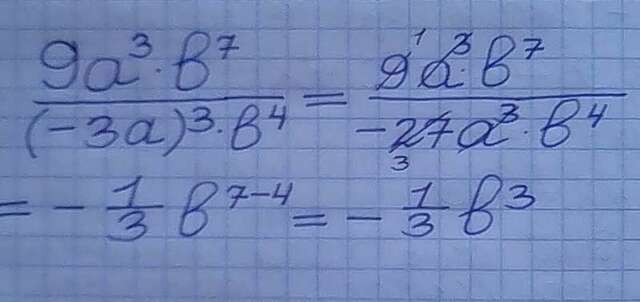 9a³·b⁷/(-3a)³·b⁴ = 9¹a³·b⁷/-27₃a³·b⁴
= -1/3 b⁷⁻⁴ = -1/3 b³